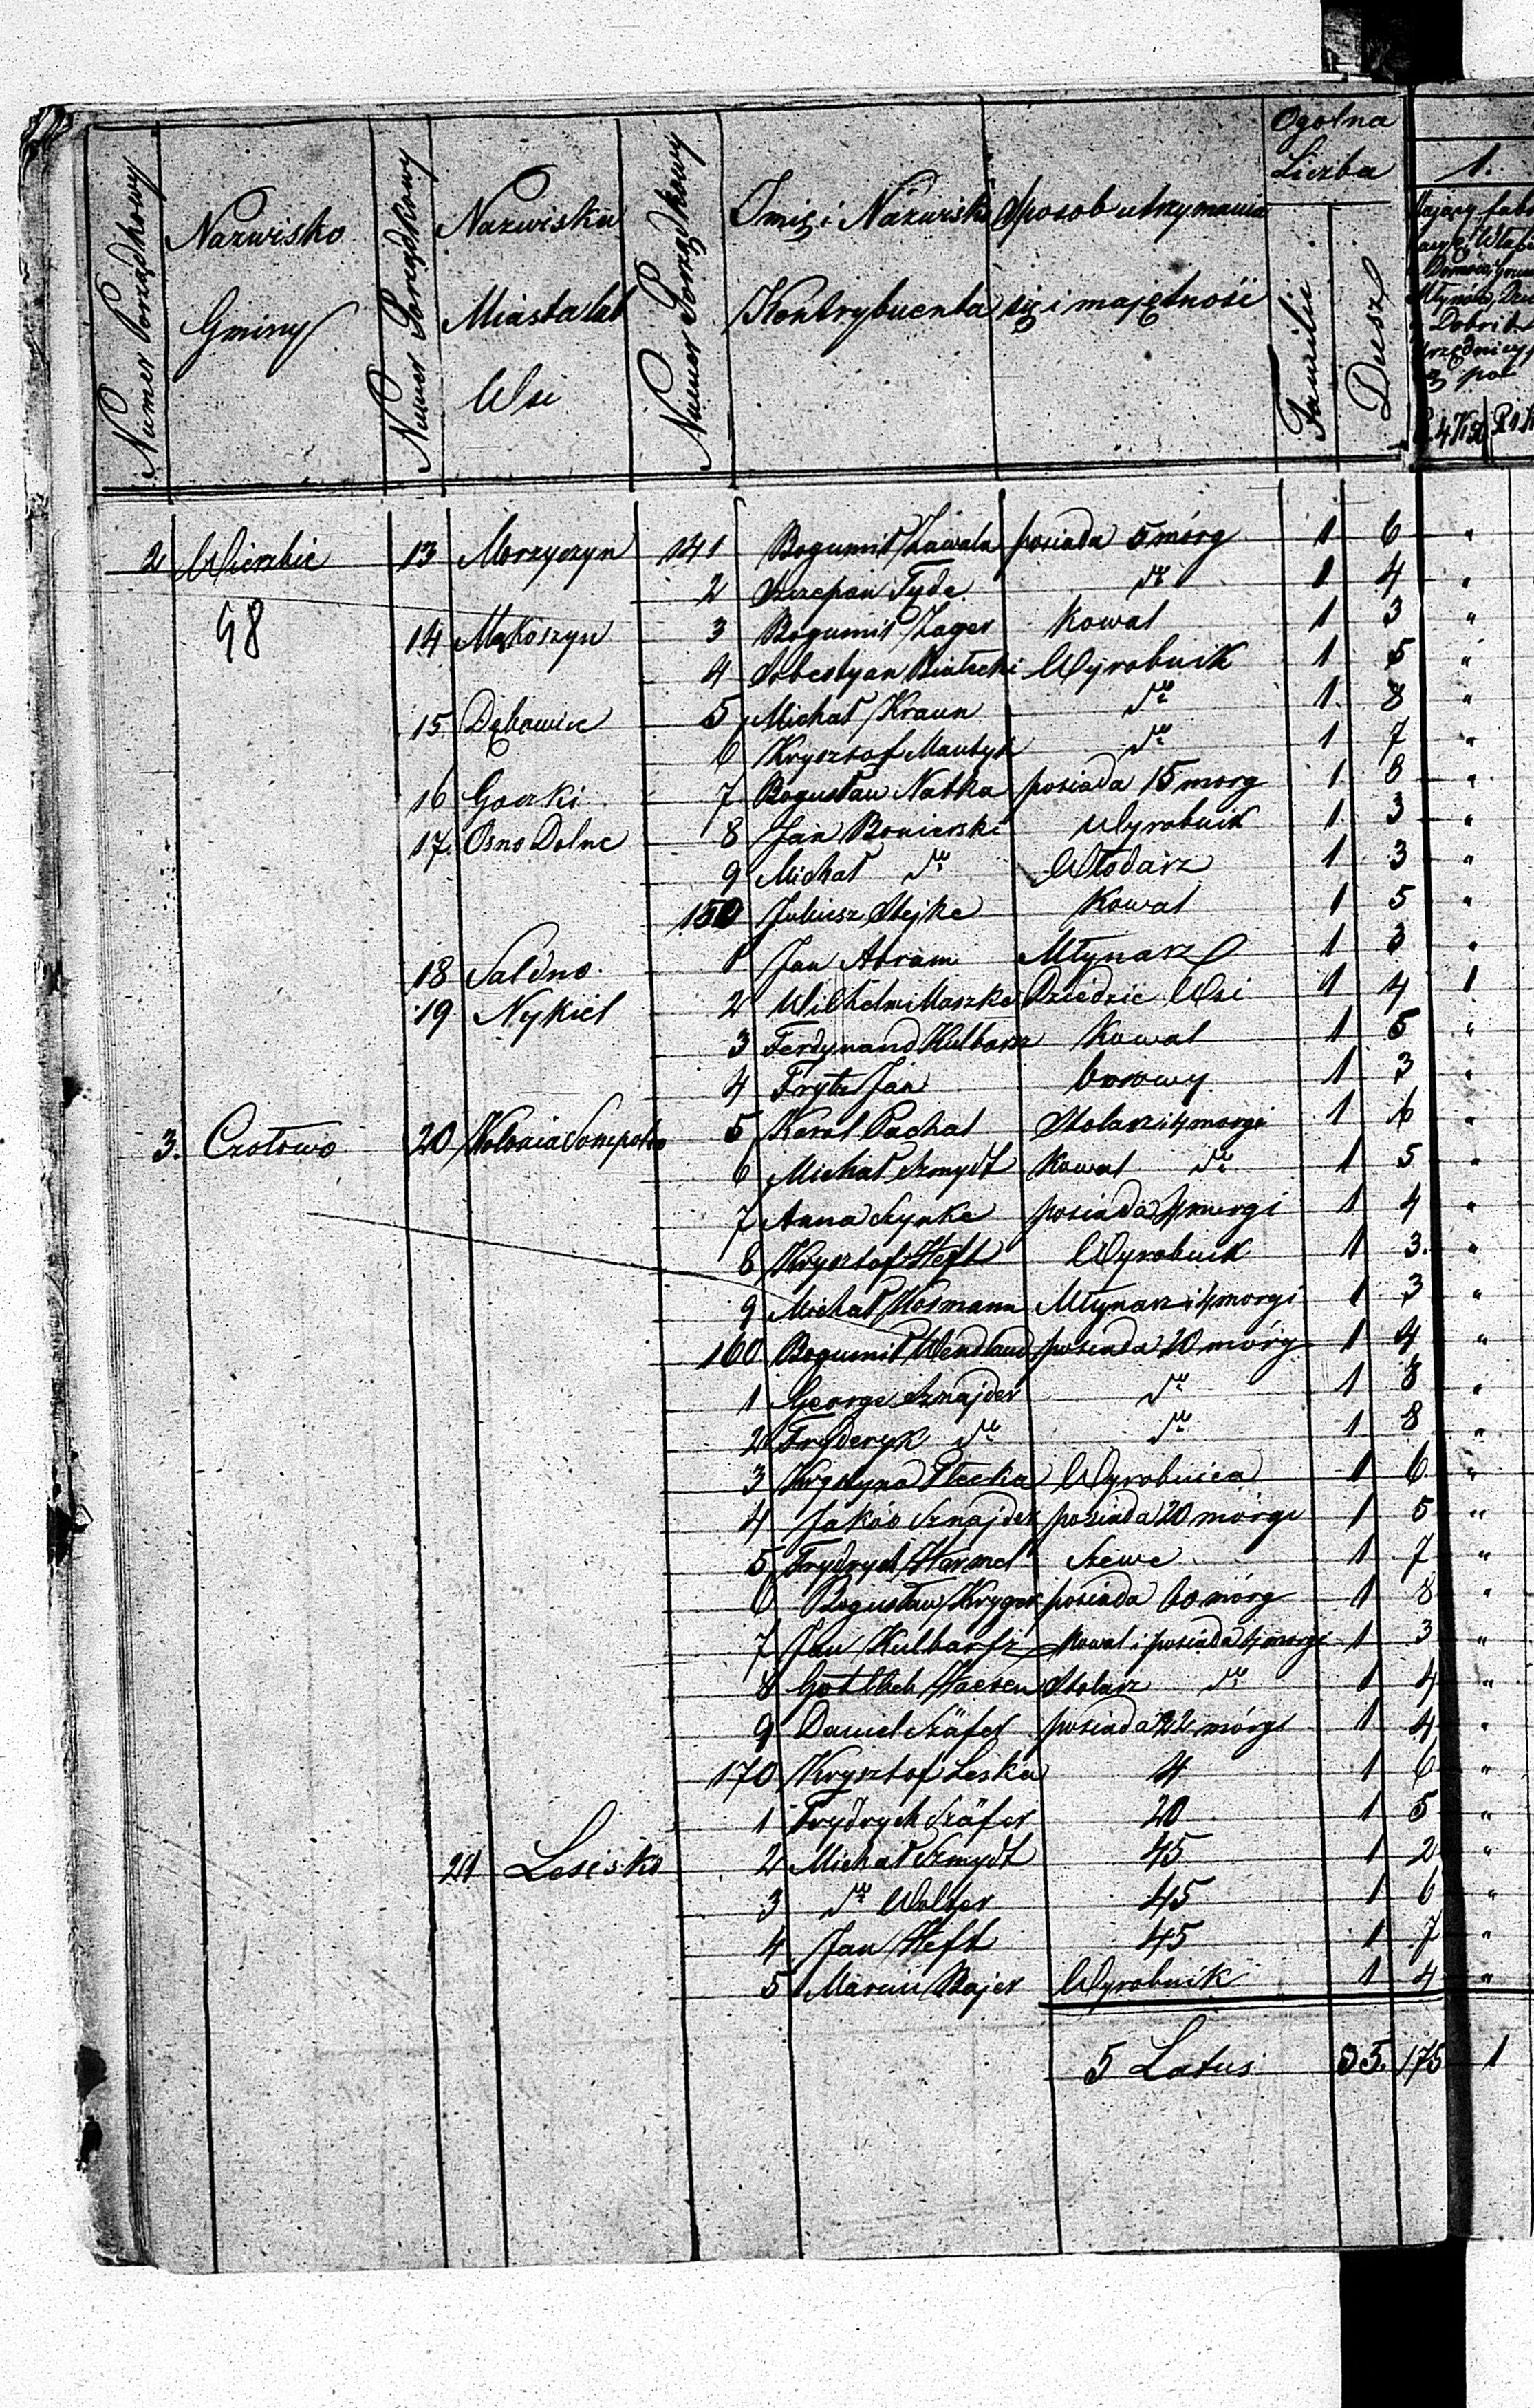 Numer Porządkowy
Nazwisko Gminy
Numer Porządkowy
Nazwisko Miasta lub Wsi
Numer Porządkowy
Imię i Nazwisko Kontrybuenta
Sposob utrzymania się i majętności
Ogolna Liczba
Familii
Dusz
1.
2 Wierzbie 13 Morzyczyn 141 Bogumił Zawala posiada 5 mórg 1 6 "
2 Szczepan Tyde dto 1 4 "
58 14 Mąkoszyn 3 Bogumił Zager Kowal 1 3 "
4 Sebestyan Białecki Wyrobnik 1 5 "
15 Dębowiec 5 Michał Kraun dto 1 8 "
6 Krysztof Mantyk dto 1 7 "
16 Goczki 7 Bogusław Natka posiada 15 morg 1 8 "
17. Osno Dolne 8 Jan Bonierski Wyrobnik 1 3 "
9 Michał dto Włodarz 1 3 "
150 Juliusz Stejke Kowal 1 5 "
18 Salėno 1 Jan Abram Młynarz 1 3 "
19 Nykiel 2 Wilhelm Maszke Dziedzic Wsi 1 4 1
3 Ferdynand Kulbarz Kowal 1 5 "
4 Frytz Jan borowy 1 3 "
3. Czołowo 20 Kolonia Sompolno 5 Karol Pachal Stolarz i 4 morgi 1 6 "
6 Michał Szmydt Kowal dto 1 5 "
7 Anna Synke posiada 4 morgi 1 4 "
8 Krysztof Heft Wyrobnik 1 3. "
9 Michał Kosmann Młynarz i 4 morgi 1 3 "
160 Bogumił Wendland posiada 20 mórg 1 4 "
1 George Sznajder dto 1 8 "
2 Fryderyk dto dto 1 8 "
3 Krystyna Płecka Wyrobnica 1 6 "
4 Jakób Sznajder posiada 20 mórg 1 5 "
5 Frydrych Harmel Szewc 1 7 "
6 Bogusław Kryger posiada 60 mórg 1 8 "
7 Jan Kulbarsz Kowal i posiada 4 morgi 1 3 "
8 Gottlieb Stolarz dto 1 4 "
9 Daniel Szäfer posiada 22 mórgi 1 4 "
170 Krysztof Leska 4 1 6 "
1 Frydrych Szäfer 20 1 5 "
21 Lesisko 2 Michał Szmydt 45 1 2 "
3 dto Wolter 45 1 6 "
4 Jan Heft 45 1 7 "
5 Marcin Bajer Wyrobnik 1 4 "
5 Latus 35. 175 1